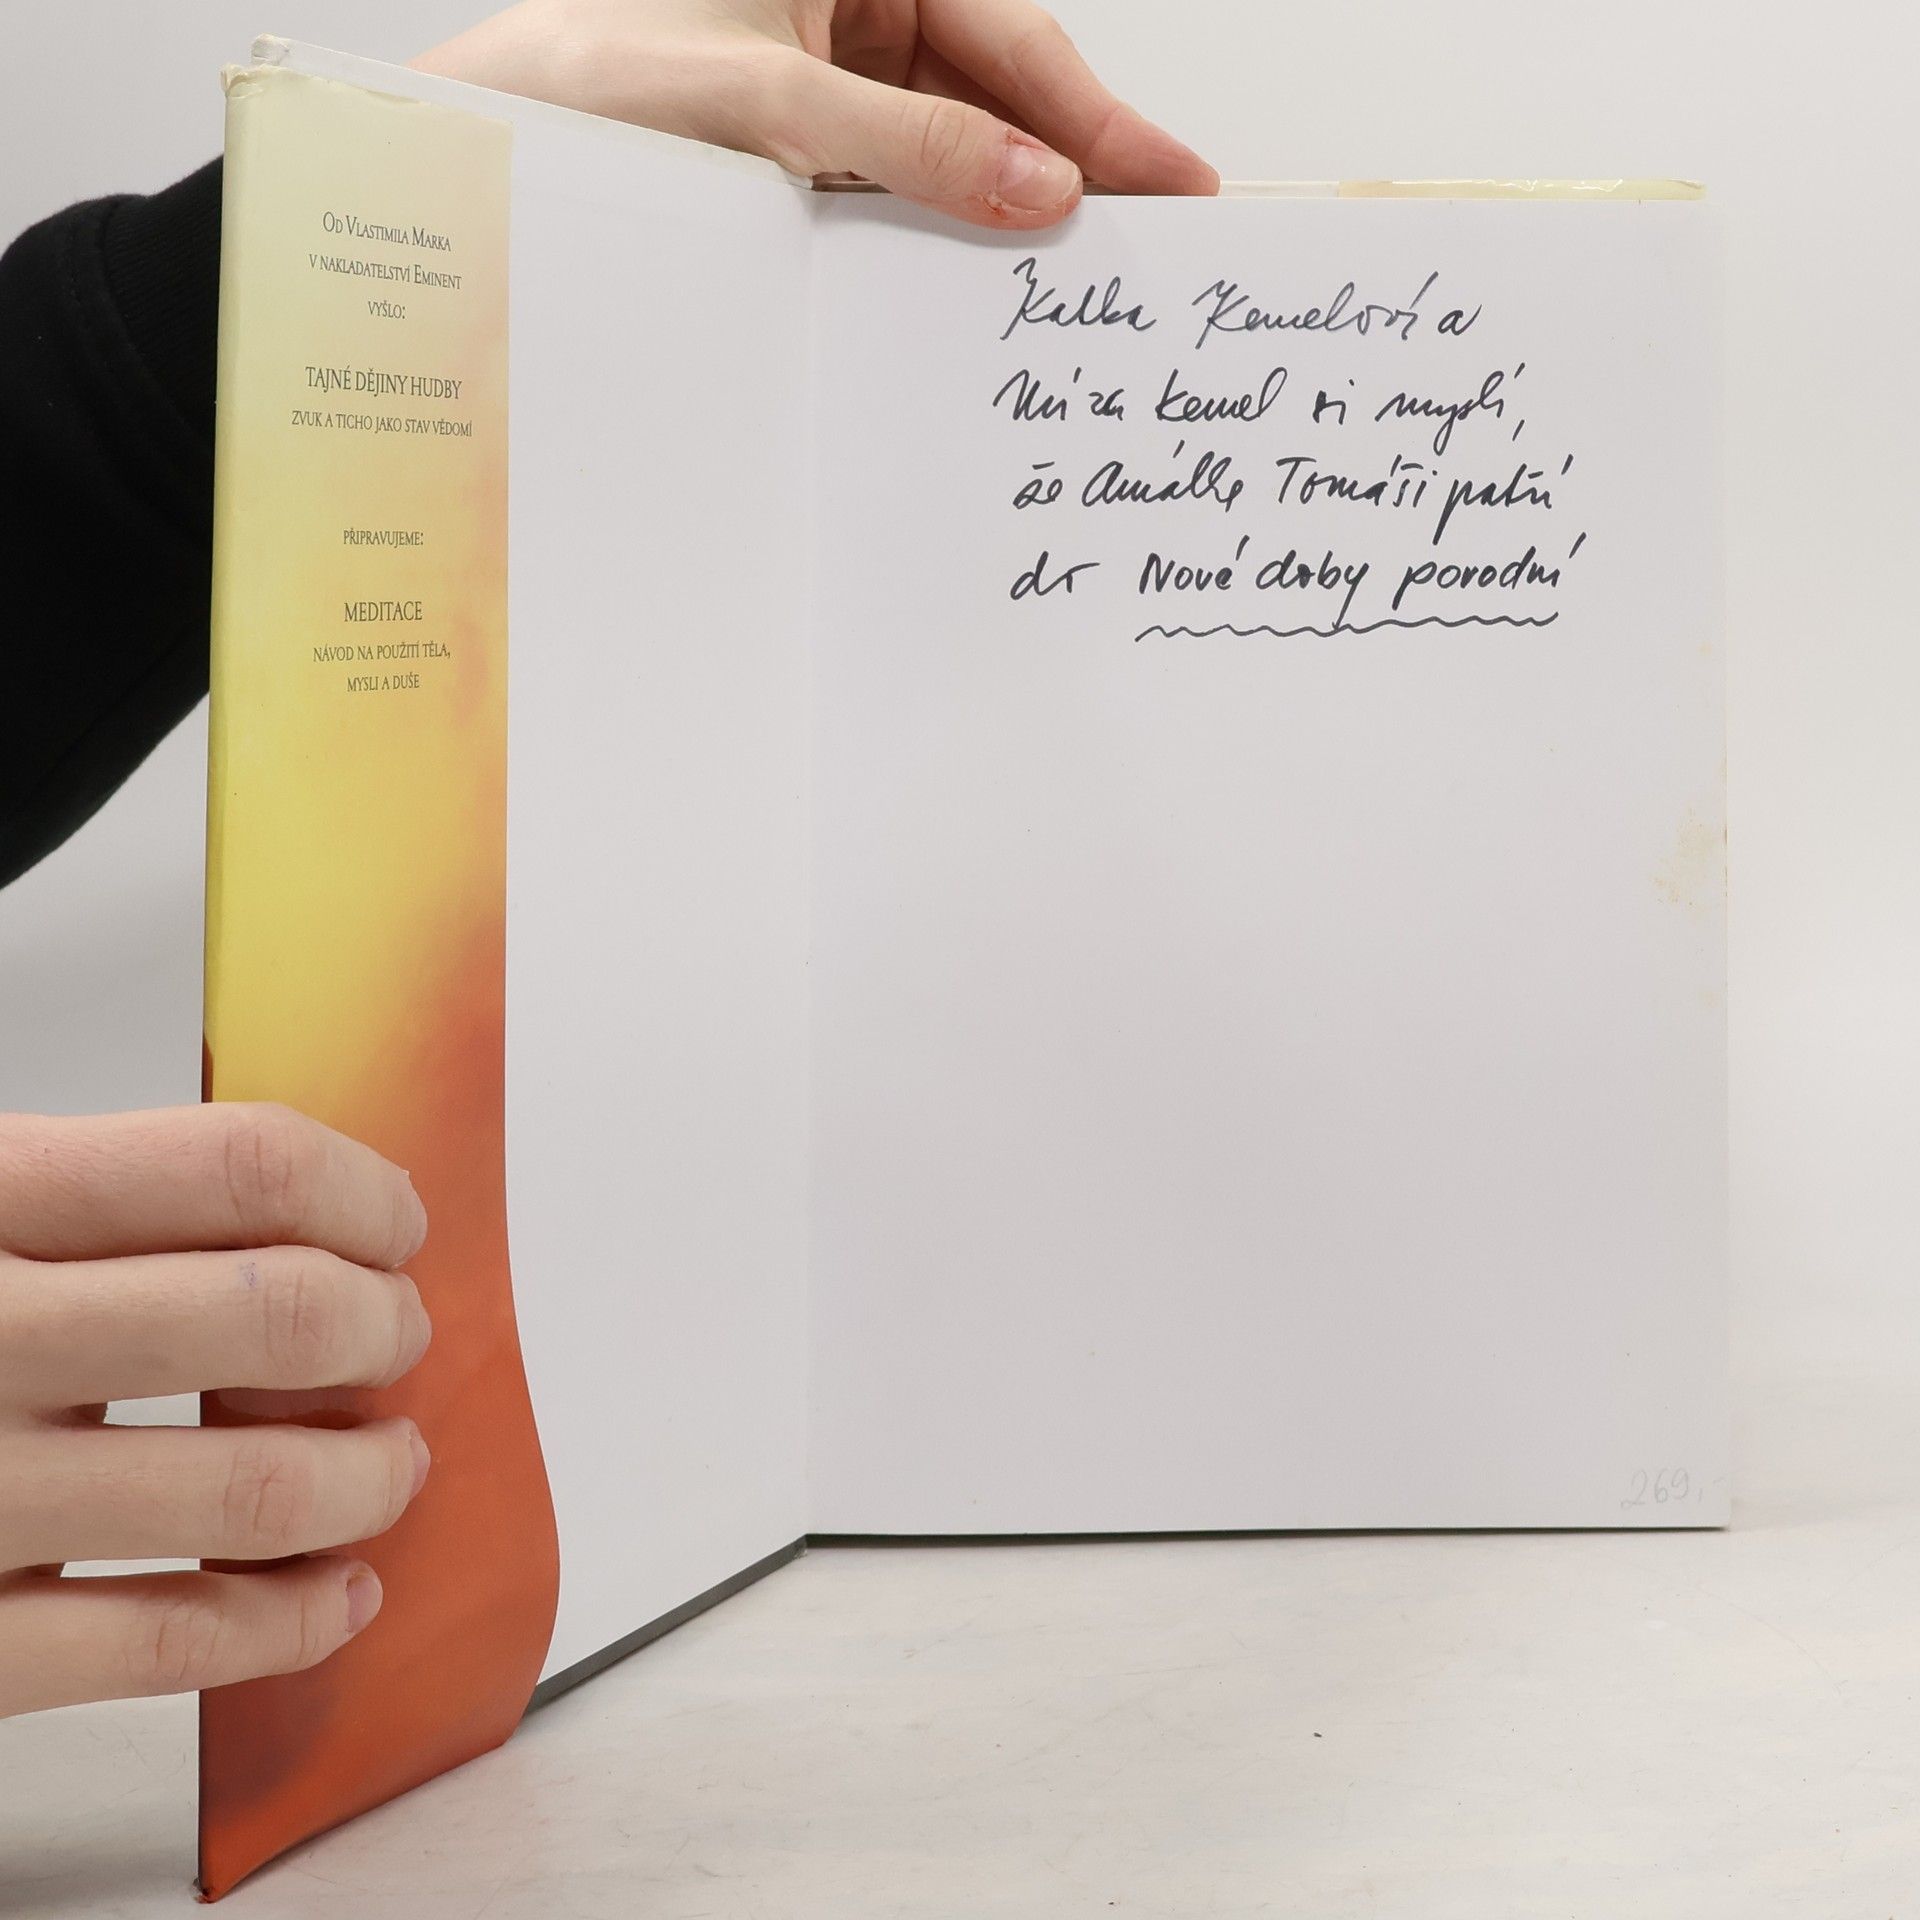 Od Vlastimila Marka
v nakladatelství Eminent
vyšlo:
TAJNÉ DĚJINY HUDBY
ZVUK A TICHO JAKO STAV VĚDOMÍ
PŘIPRAVUJEME:
MEDITACE
NÁVOD NA POUŽITÍ TĚLA,
MYSLI A DUŠE
Katka Kemelová a
Kemel si myslí,
že Amálka Tomáši patří
do Nové doby porodní
269,-